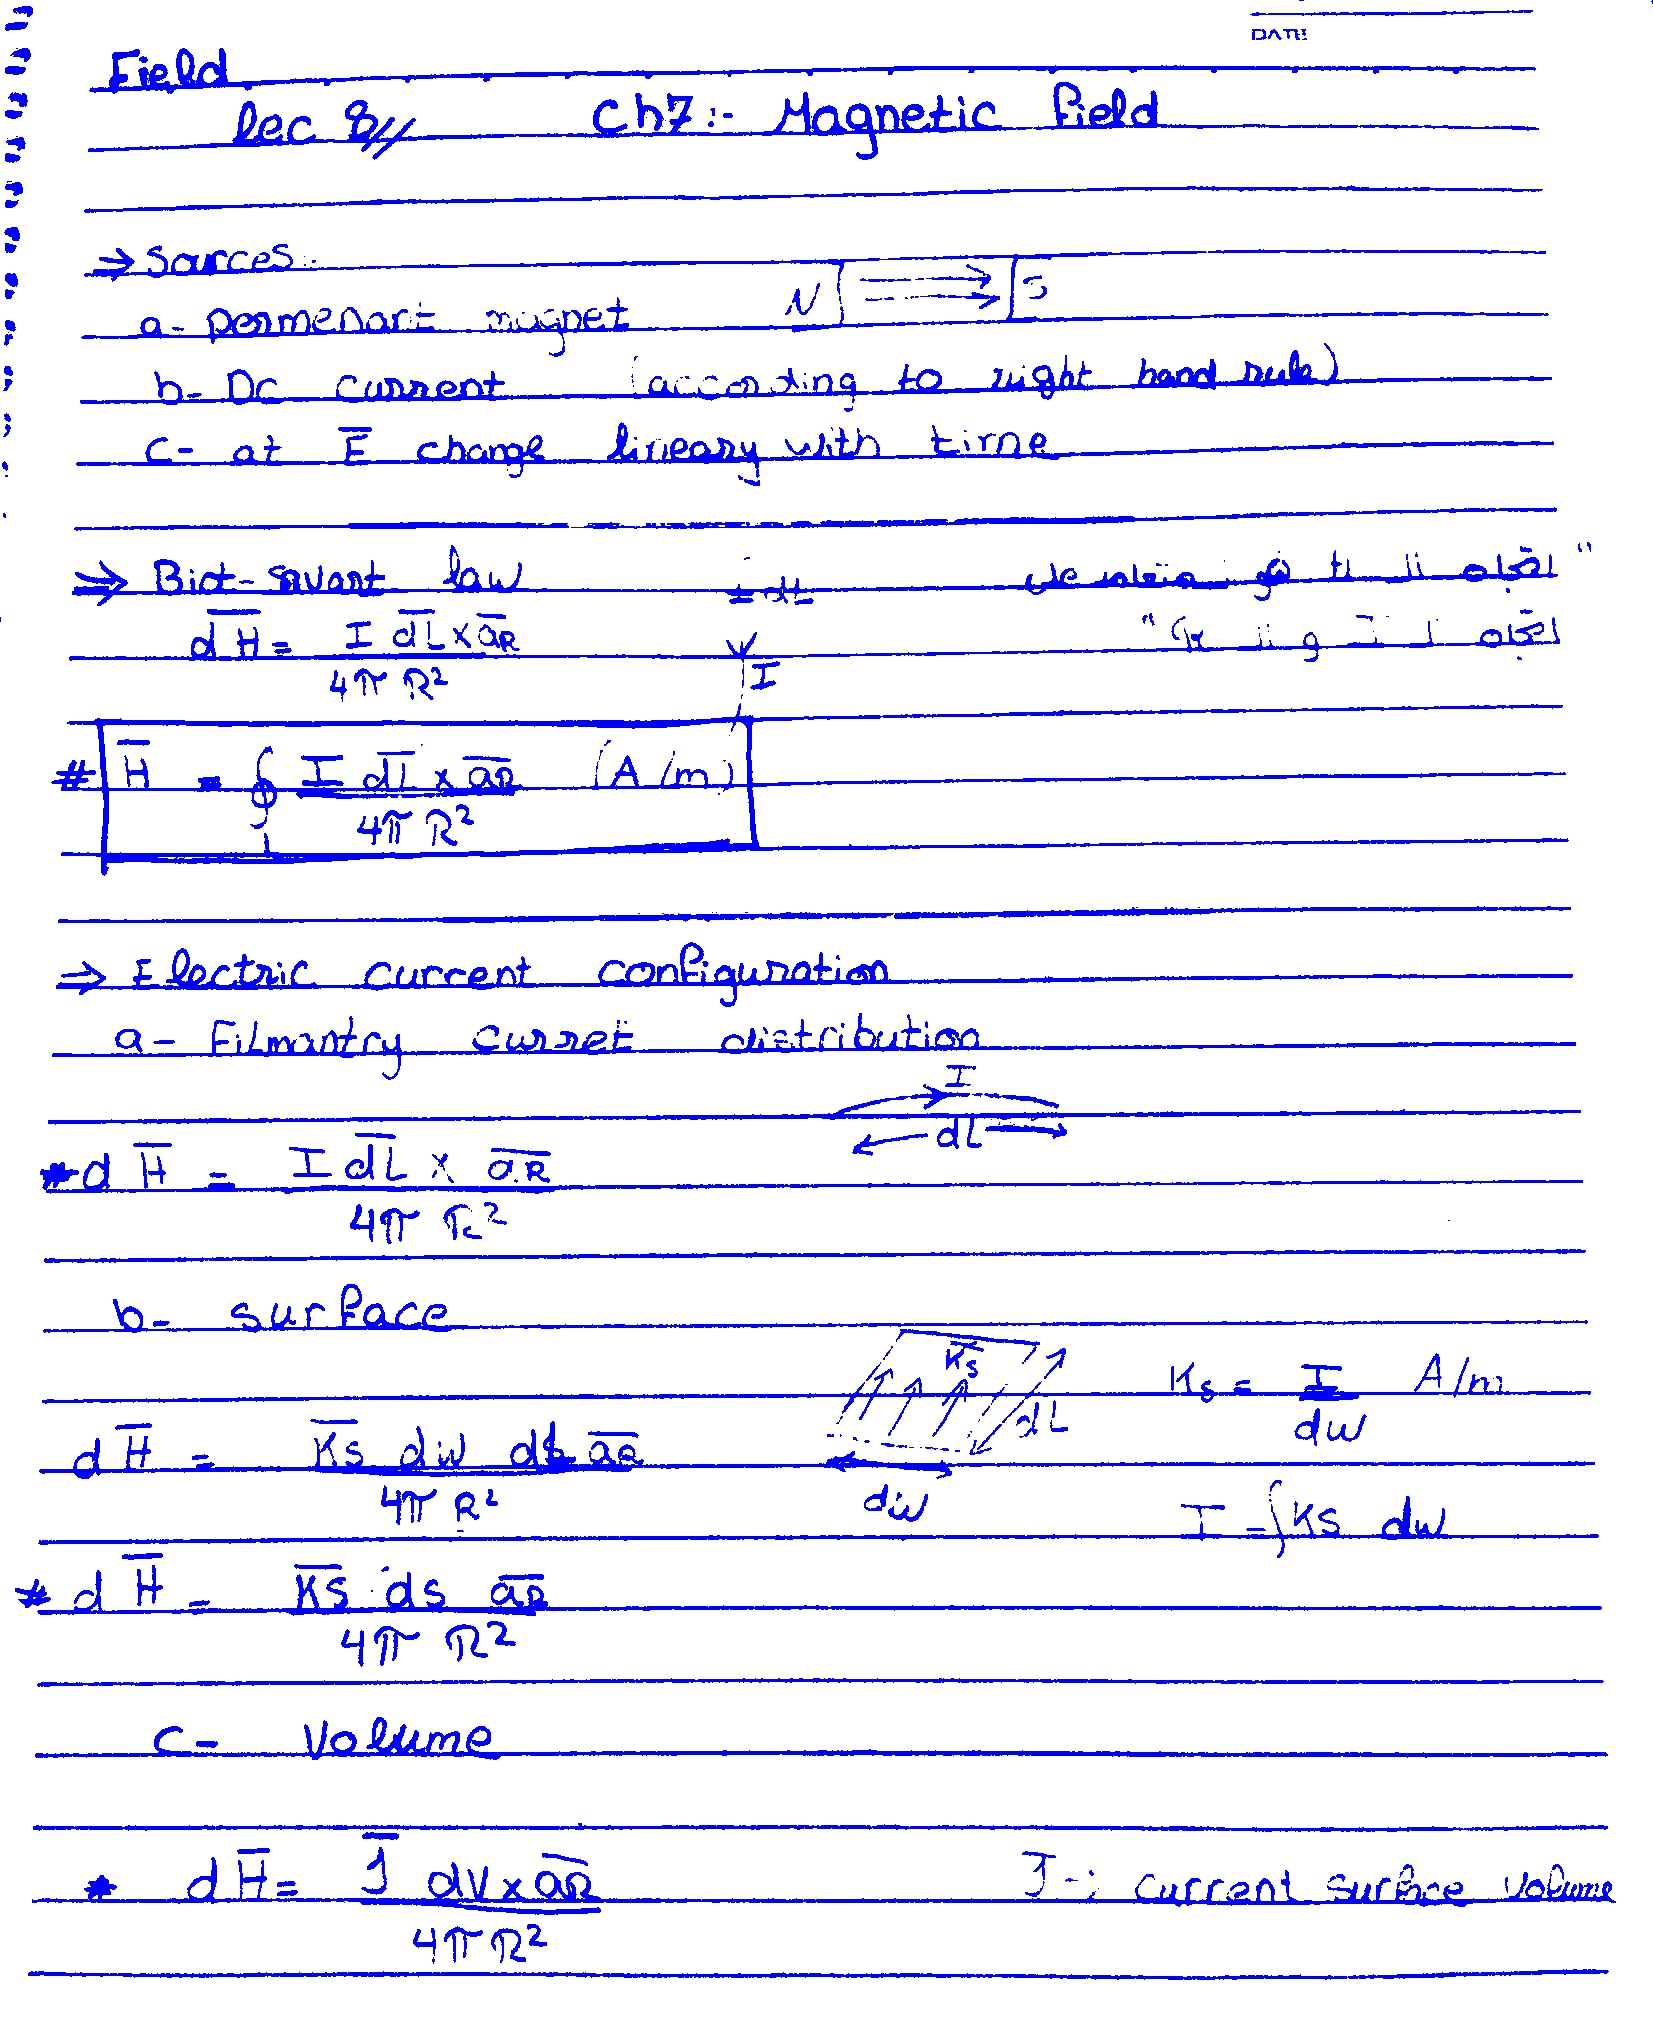 DATE
Field
lec 8//   Ch7:- Magnetic field
⇒ Sources:
a- permenant magnet   N   S
b- Dc current (according to right hand rule)
c- at E̅ change lineary with time
⇒ Biot-savart law
dH̅ = I dL̅ × a̅R / 4π R²
I
# H̅ = ∮ I dL̅ × a̅R / 4π R² (A/m)
⇒ Electric current configuration
a- Filmantry curret distribution
I
dL
* dH̅ = I dL̅ × a̅R / 4π R²
b- surface
K̅s   dL   dw   Ks = I / dw A/m
dH̅ = K̅s dw dL a̅R / 4π R²
I = ∫ Ks dw
* dH̅ = K̅s ds a̅R / 4π R²
c- Volume
* dH̅ = J̅ dV × a̅R / 4π R²   J -: current surface volume